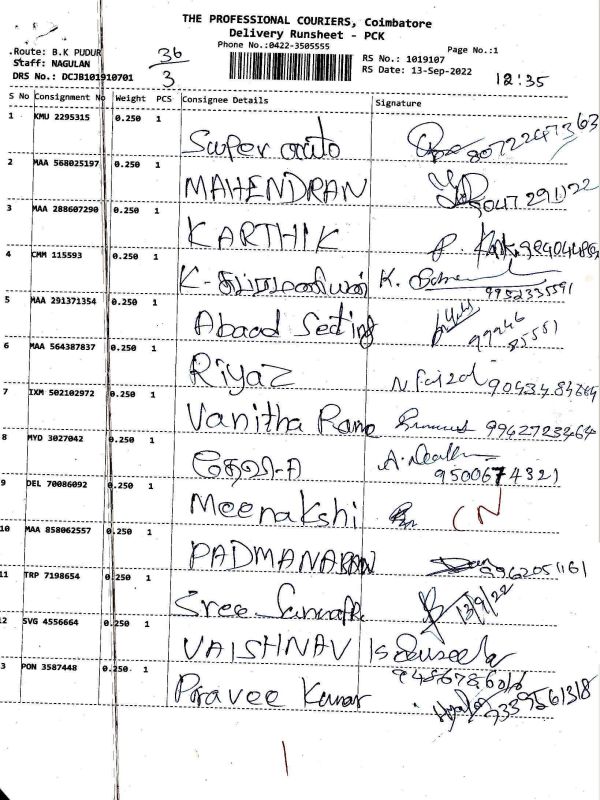 THE PROFESSIONAL COURIERS, Coimbatore
Delivery Runsheet - PCK
Phone No.:0422-3505555
Page No.:1
.Route: B.K PUDUR
Staff: NAGULAN
DRS No.: DCJB101910701
36
3
RS No.: 1019107
RS Date: 13-Sep-2022
12:35
S No Consignment No Weight PCS Consignee Details Signature
1 KMU 2295315 0.250 1 Super auto
2 MAA 568025197 0.250 1 MAHENDRAN
3 MAA 288607290 0.250 1 KARTHIK
4 CMM 115593 0.250 1 K-சுப்ரமணியன் K. 9952335591
5 MAA 291371354 0.250 1 Abaad Seating 99946 85551
6 MAA 564387837 0.250 1 Riyaz
7 IXM 502102972 0.250 1 Vanitha Rame 9942723464
8 MYD 3027042 0.250 1 தேவி-A 9500674321
9 DEL 70086092 0.250 1 Meenakshi CN
10 MAA 858062557 0.250 1 PADMANABAN
11 TRP 7198654 0.250 1 Sree 13/9/22
12 SVG 4556664 0.250 1 VAISHNAV
13 PON 3587448 0.250 1 Pravee Kumar